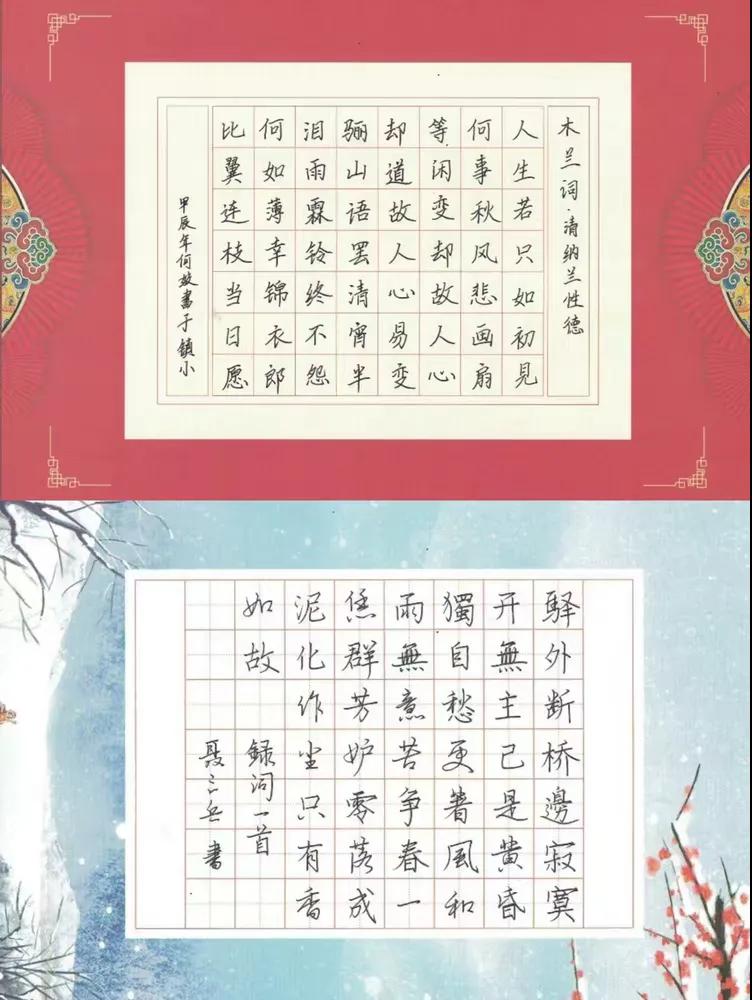 木兰词·清纳兰性德
人生若只如初見
何事秋风悲画扇
等闲变却故人心
却道故人心易变
骊山语罢清宵半
泪雨霖铃终不怨
何如薄幸锦衣郎
比翼连枝当日愿
甲辰年何放書于鎮小
驿外断桥邊寂寞
开無主已是黄昏
獨自愁更著風和
雨無意苦争春一
恁群芳妒零落成
泥化作尘只有香
如故
録词一首
聂 書